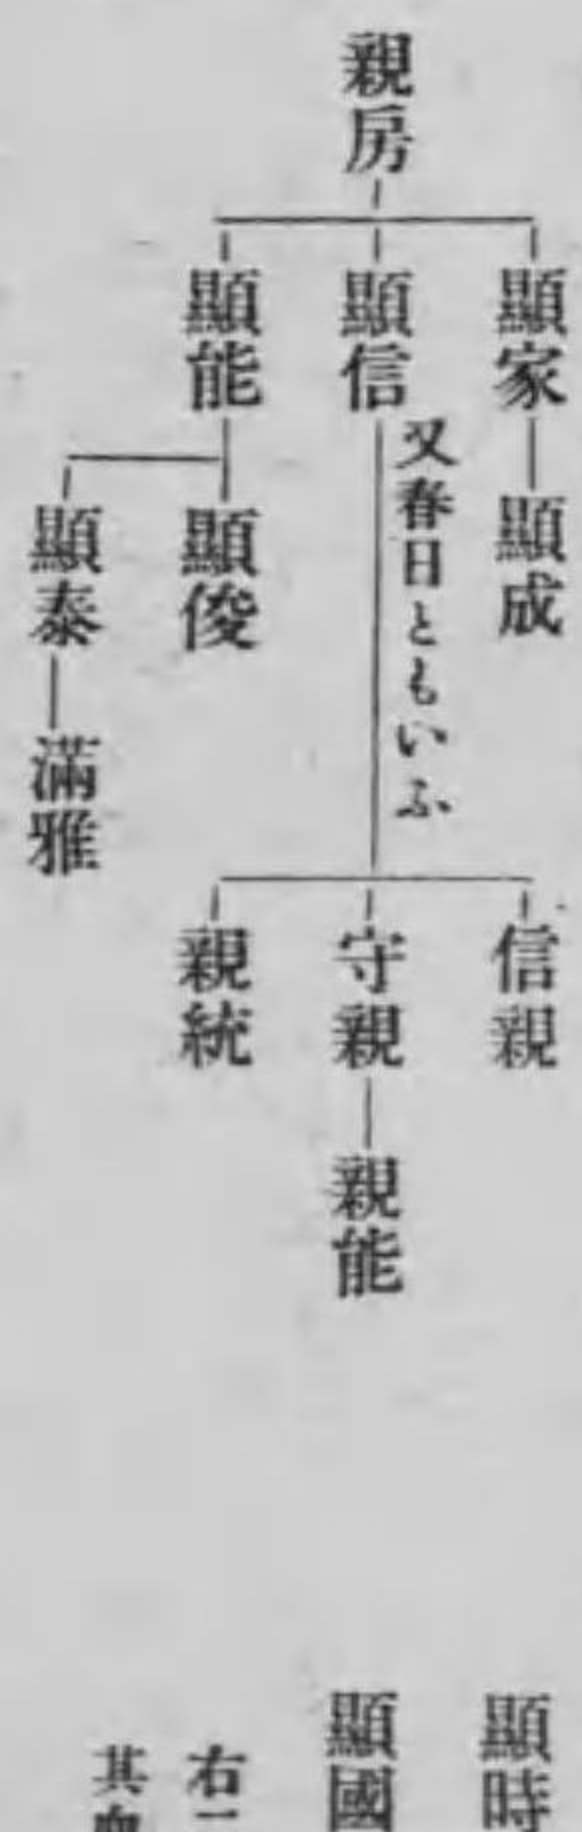 親房
顯家
顯成
顯信
又春日ともいふ
信親
守親
親能
親統
顯能
顯俊
顯泰
滿雅
顯時
顯國
右
其